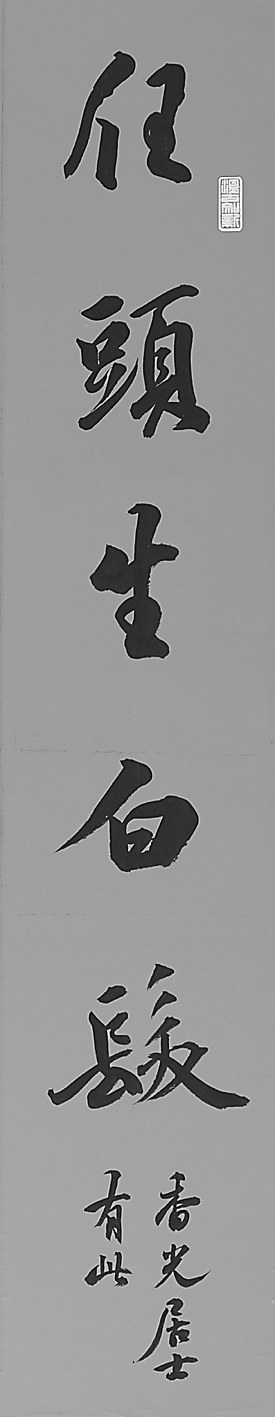 任頭生白髮
香光居士
有此